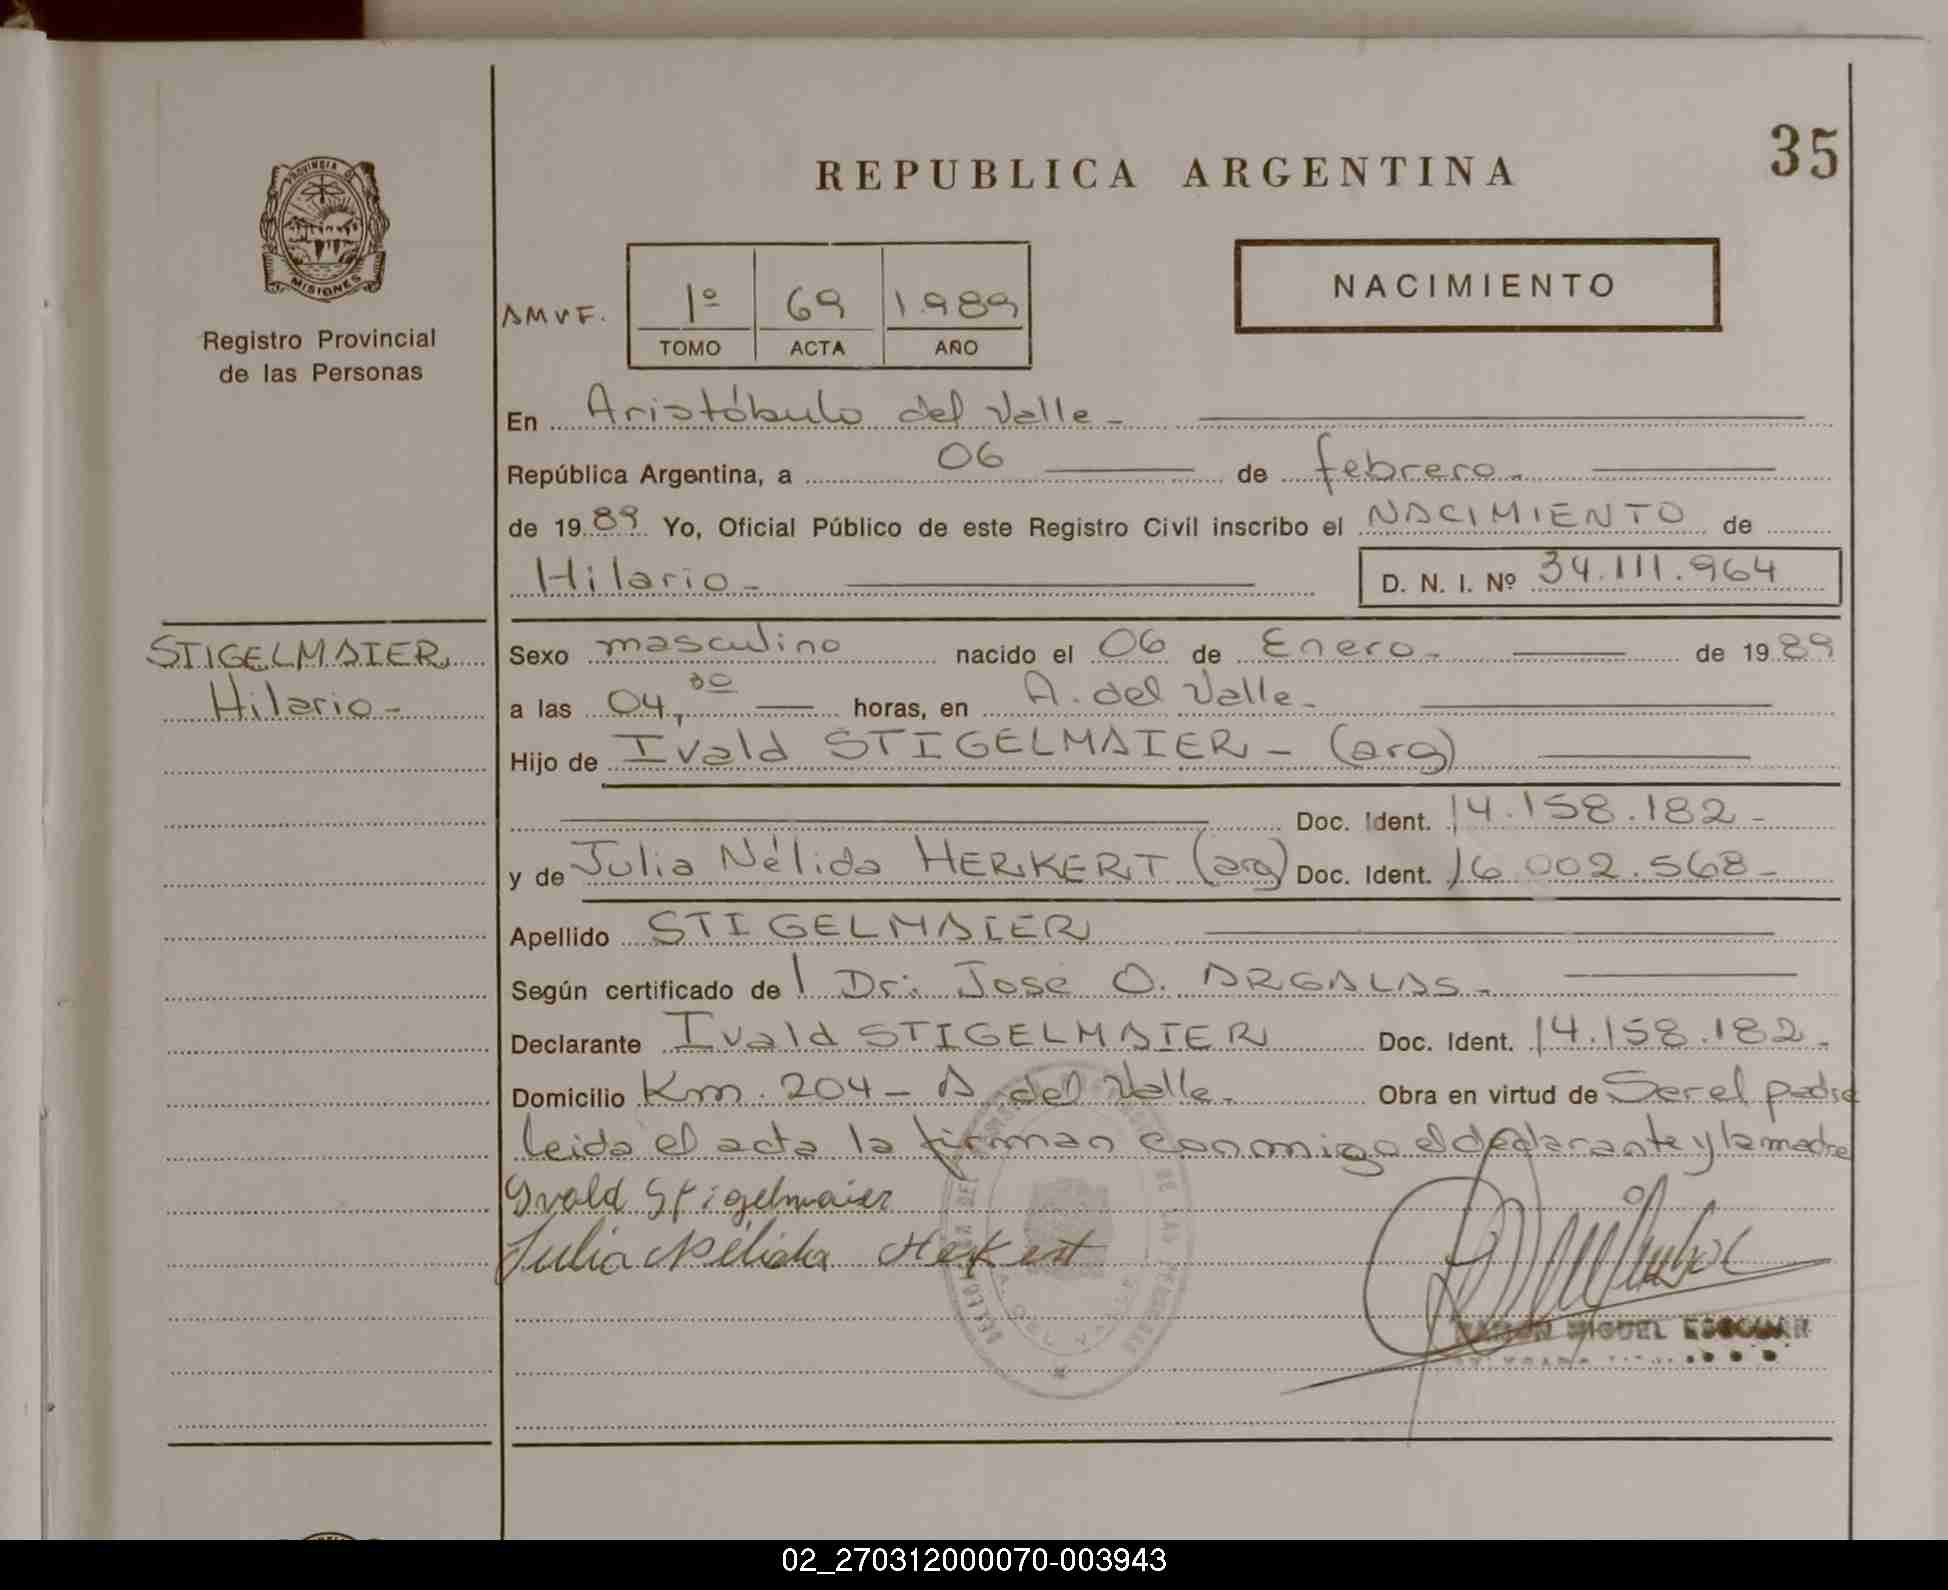 35
REPUBLICA ARGENTINA
PROVINCIA DE
MISIONES
Registro Provincial
de las Personas
NACIMIENTO
AMVF.
1º 69 1.989
TOMO ACTA AÑO
En Aristóbulo del Valle -
República Argentina, a 06 de febrero -
de 1989 Yo, Oficial Público de este Registro Civil inscribo el NACIMIENTO de
Hilario - D. N. I. Nº 34.111.964
STIGELMAIER
Hilario -
Sexo masculino nacido el 06 de Enero - de 1989
a las 04,30 horas, en A. del Valle -
Hijo de Ivald STIGELMAIER - (arg)
Doc. Ident. 14.158.182 -
y de Julia Nélida HERKERT (arg) Doc. Ident. 16.002.568 -
Apellido STIGELMAIER
Según certificado de l Dr: José O. ARGALAS -
Declarante Ivald STIGELMAIER Doc. Ident. 14.158.182 -
Domicilio Km. 204 - A. del Valle - Obra en virtud de Ser el padre
leida el acta la firman conmigo el declarante y la madre
Ivald Stigelmaier
Julia Nélida Herkert
RAMON MIGUEL ESCOBAR
02_270312000070-003943